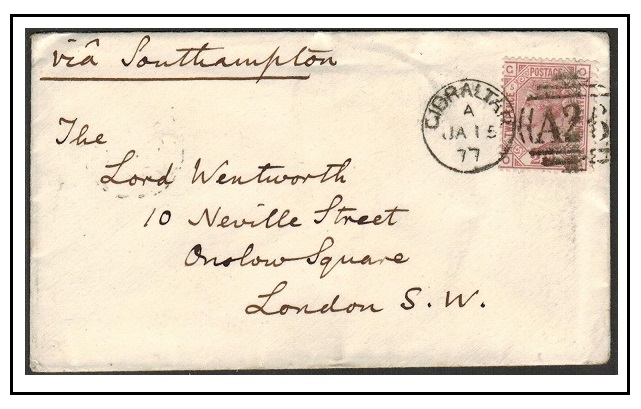 viâ Southampton
GIBRALTAR
A
JA 15
77
A26
POSTAGE
The
Lord Wentworth
10 Neville Street
Onslow Square
London S. W.